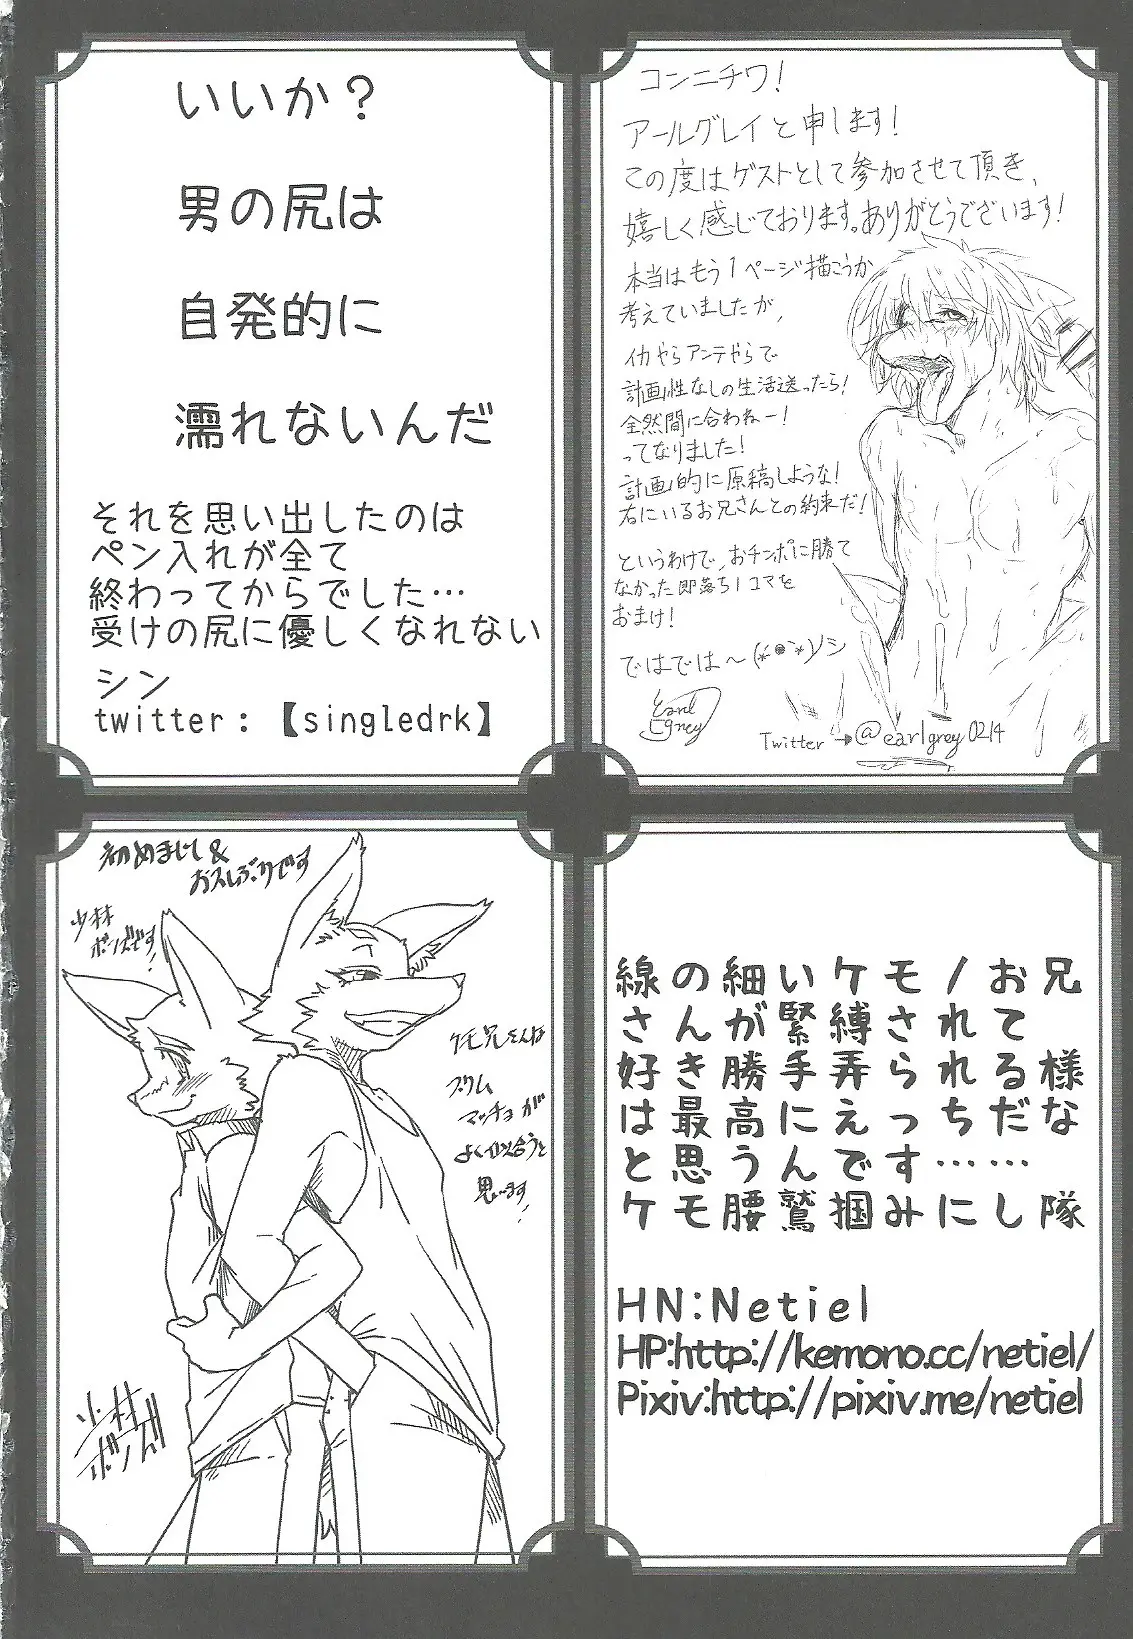 コンニチワ!
アールグレイと申します!
この度はゲストとして参加させて頂き、
嬉しく感じております。ありがとうございます!
本当はもう1ページ描こうか
考えていましたが、
イカやらアンテやらで
計画性なしの生活送ったら!
全然間に合わねー!
ってなりました!
計画的に原稿しような!
右にいるお兄さんとの約束だ!
というわけで、おチンポに勝て
なかった即落ち1コマを
おまけ!
ではでは〜(*´●`*)ノシ
Earl Grey
Twitter→@earlgrey0214
いいか?
男の尻は
自発的に
濡れないんだ
それを思い出したのは
ペン入れが全て
終わってからでした…
受けの尻に優しくなれない
シン
twitter:【singledrk】
線の細いケモノお兄
さんが緊縛されて
好き勝手弄られる様
は最高にえっちだな
と思うんです……
ケモ腰鷲掴みにし隊
HN:Netiel
HP:http://kemono.cc/netiel/
Pixiv:http://pixiv.me/netiel
初めまして&
お久しぶりです
少林
ボンバです!
ケモ兄さんは
スリム
マッチョが
よく似合うと
思います!